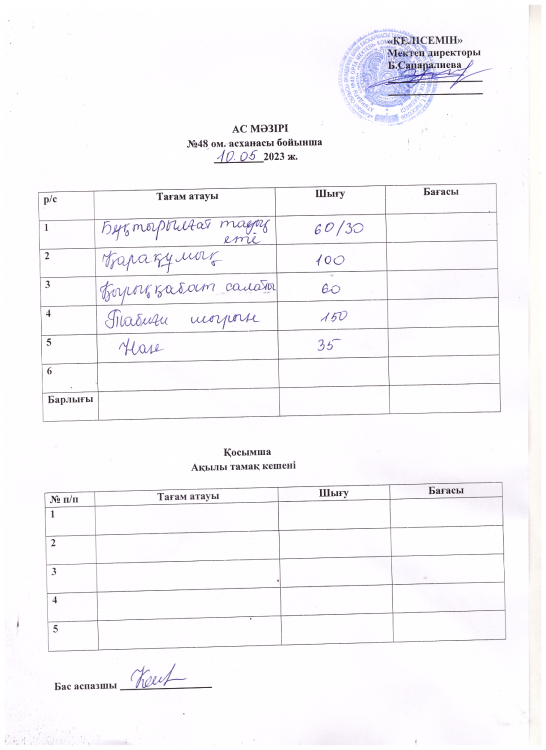 «КЕЛІСЕМІН»
Мектеп директоры
Б.Сапаралиева
АС МӘЗІРІ
№48 ом. асханасы бойынша
10.05 2023 ж.
р/с Тағам атауы Шығу Бағасы
1 Бұқтырылған тауық 60/30
еті
2 Қарақұмық 100
3 Қырыққабат салаты 60
4 Табиғи шырын 150
5 Нан 35
6
Барлығы
Қосымша
Ақылы тамақ кешені
№ п/п Тағам атауы Шығу Бағасы
1
2
3
4
5
Бас аспазшы